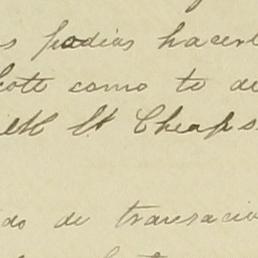 s podias hacerl
cott como te de
ilk St Cheaps
do de transacio